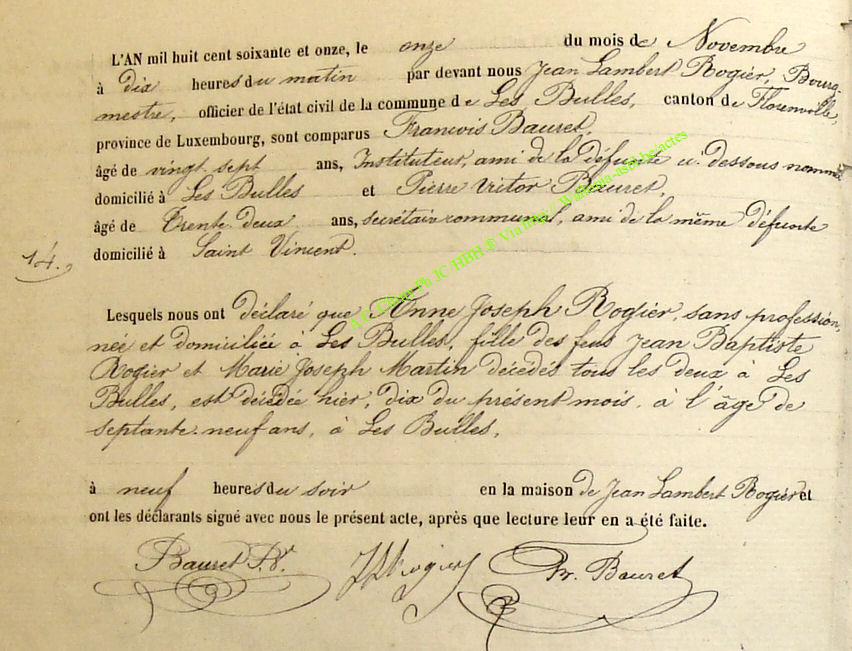 L'AN mil huit cent soixante et onze, le onze du mois de Novembre
à dix heures du matin par devant nous Jean Lambert Rogier, Bourg-
mestre, officier de l'état civil de la commune de Les Bulles, canton de Florenville,
province de Luxembourg, sont comparus Francois Bauret,
âgé de vingt sept ans, Instituteur, ami de la défunte ci-dessous nommée
domicilié à Les Bulles et Pierre Victor Bauret,
âgé de trente deux ans, secrétaire communal, ami de la même défunte
domicilié à Saint Vincent.
14.
Lesquels nous ont déclaré que Anne Joseph Rogier, sans profession,
née et domiciliée à Les Bulles, fille des feus Jean Baptiste
Rogier et Marie Joseph Martin décédés tous les deux à Les
Bulles, est décédée hier, dix du présent mois, à l'âge de
septante-neuf ans, à Les Bulles,
à neuf heures du soir en la maison de Jean Lambert Rogier et
ont les déclarants signé avec nous le présent acte, après que lecture leur en a été faite.
Bauret P.V. JLRogier Fr. Bauret